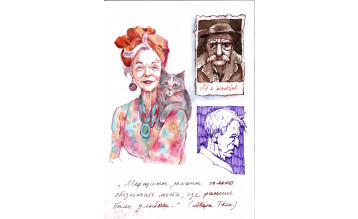 old & beautiful
„Морщины должны только
обозначать места, где раньше
были улыбки." (Марк Твен)